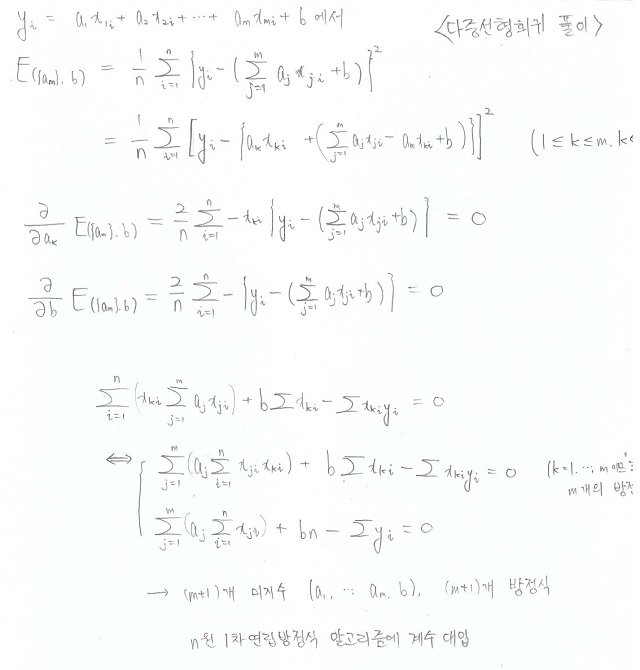 y_i = a_1 x_{1i} + a_2 x_{2i} + ⋯ + a_m x_{mi} + b 에서
<다중선형회귀 풀이>
E({a_m}, b) = 1/n Σ_{i=1}^{n} {y_i − (Σ_{j=1}^{m} a_j x_{ji} + b)}²
= 1/n Σ_{i=1}^{n} [y_i − {a_k x_{ki} + (Σ_{j=1}^{m} a_j x_{ji} − a_k x_{ki} + b)}]² (1 ≤ k ≤ m, k∈
∂/∂a_k E({a_m}, b) = 2/n Σ_{i=1}^{n} − x_{ki} {y_i − (Σ_{j=1}^{m} a_j x_{ji} + b)} = 0
∂/∂b E({a_m}, b) = 2/n Σ_{i=1}^{n} − {y_i − (Σ_{j=1}^{m} a_j x_{ji} + b)} = 0
Σ_{i=1}^{n} (x_{ki} Σ_{j=1}^{m} a_j x_{ji}) + b Σ x_{ki} − Σ x_{ki} y_i = 0
⇔ { Σ_{j=1}^{m} (a_j Σ_{i=1}^{n} x_{ji} x_{ki}) + b Σ x_{ki} − Σ x_{ki} y_i = 0 (k=1, ⋯, m 이므로
m개의 방정
Σ_{j=1}^{m} (a_j Σ_{i=1}^{n} x_{ji}) + bn − Σ y_i = 0
→ (m+1)개 미지수 (a_1, ⋯ a_m, b), (m+1)개 방정식
n원 1차 연립방정식 알고리즘에 계수 대입